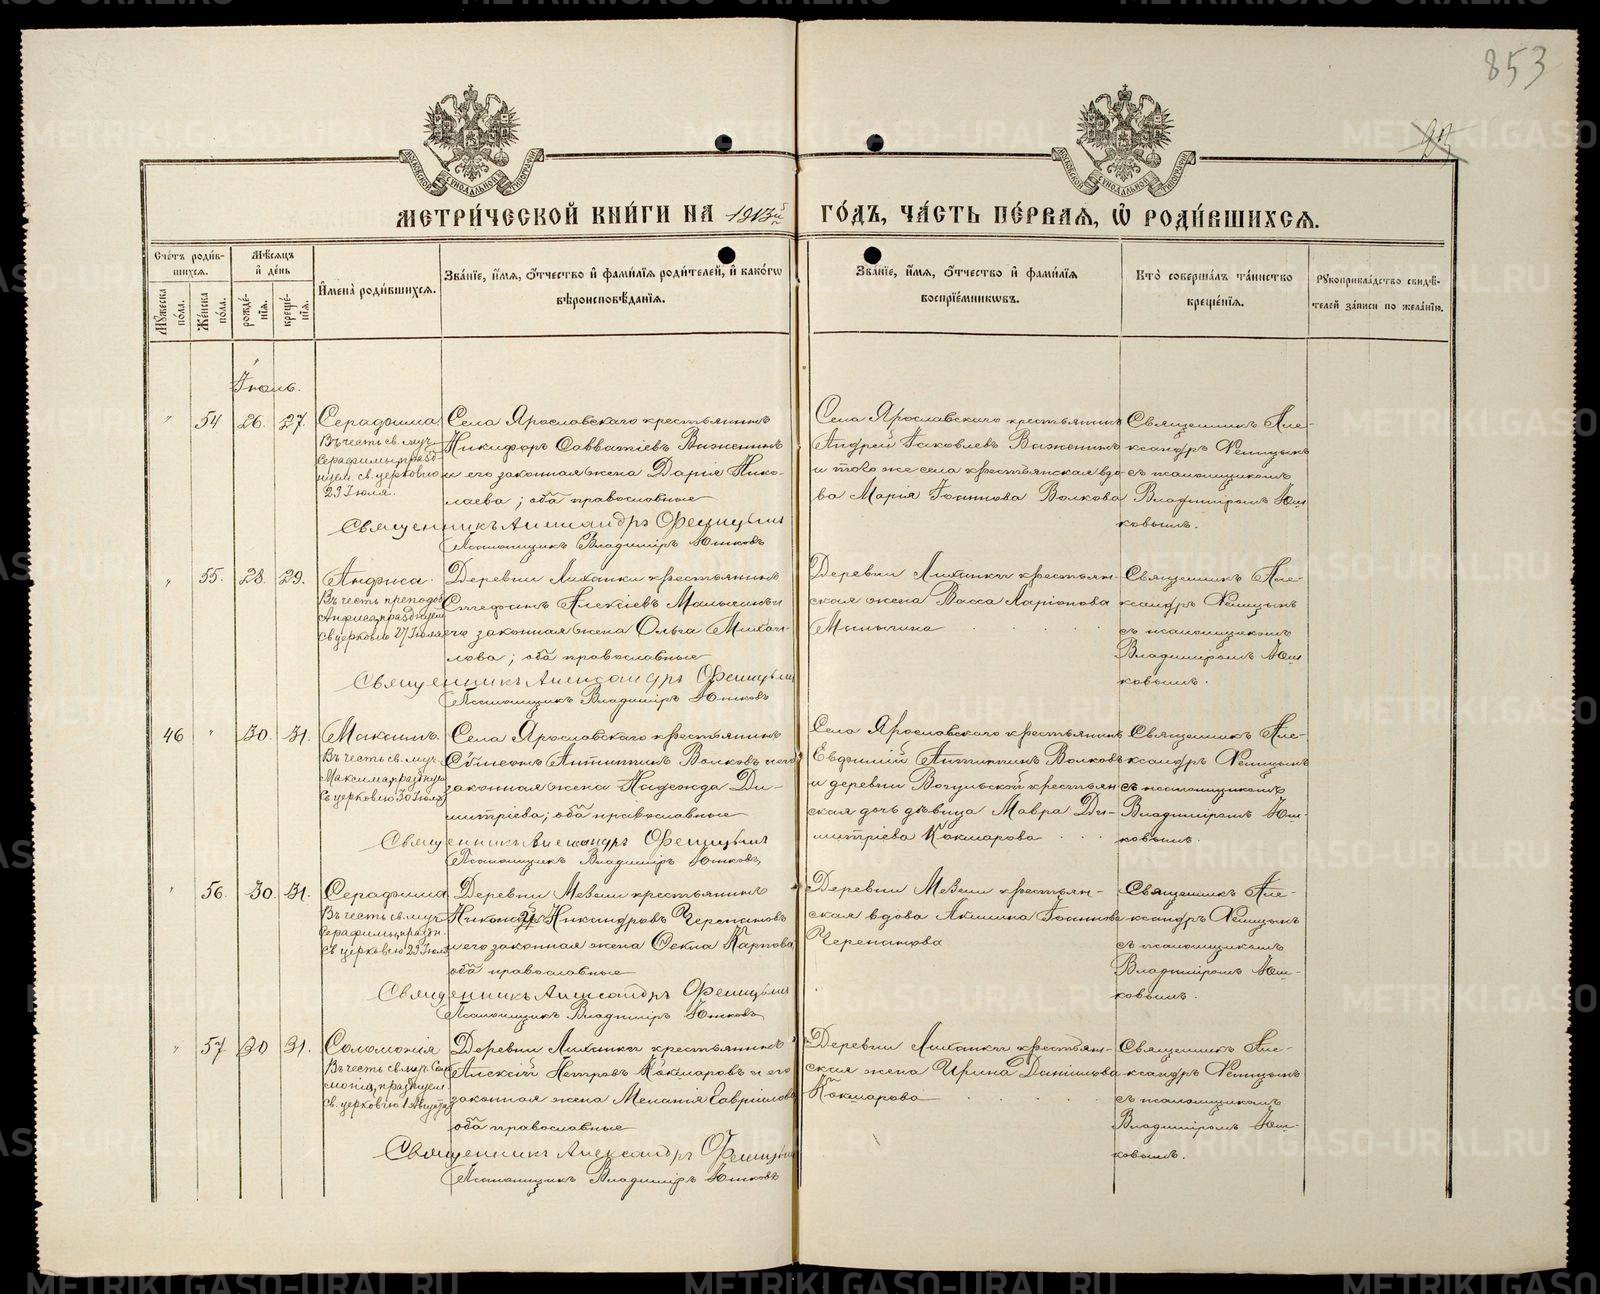 853
23
МОСКОВСКОЙ СѴНОДАЛЬНОЙ ТИПОГРАФІИ
МОСКОВСКОЙ СѴНОДАЛЬНОЙ ТИПОГРАФІИ
МЕТРИ́ЧЕСКОЙ КНИ́ГИ НА 1913й ГО́ДЪ, ЧА́СТЬ ПЕ́РВАѦ, Ѡ҆ РОДИ́ВШИХСѦ.
Сче́тъ роди́в-
шихсѧ.
Мꙋ́жеска по́ла.
Же́нска по́ла.
Мѣ́сѧцъ
и҆ де́нь
рожде́-
нїѧ.
креще́-
нїѧ.
И҆мена̀ роди́вшихсѧ.
Зва́нїе, и҆́мѧ, ѻ҆́тчество и҆ фами́лїѧ роди́телей, и҆ како́гѡ
вѣроисповѣ́данїѧ.
Зва́нїе, и҆́мѧ, ѻ҆́тчество и҆ фами́лїѧ
воспрїе́мникѡвъ.
Кто̀ соверша́лъ та́инство
креще́нїѧ.
Рꙋкоприкла́дство свидѣ́-
телей за́писи по жела́нїю.
Іюль.
" 54 26. 27.
Серафима
Въ честь св. муч.
Серафимы, празд-
нуем. св. церковію
29 Іюля.
Села Ярославскаго крестьянинъ
Никифоръ Савватіевъ Важенинъ
и его законная жена Дарія Нико-
лаева; оба православные
Священникъ Александръ Феницынъ
Псаломщикъ Владиміръ Юшковъ
Села Ярославскаго крестьянинъ
Андрей Іаковлевъ Важенинъ
и того же села крестьянская вдо-
ва Марія Іоаннова Волкова
Священникъ Але-
ксандръ Феницынъ
съ псаломщикомъ
Владиміромъ Юш-
ковымъ.
" 55. 28. 29.
Анфиса.
Въ честь преподоб.
Анфисы, празднуем
св церковію 27 Іюля
Деревни Лиханки крестьянинъ
Стефанъ Алексіевъ
его законная жена Ольга Михаи-
лова; оба православные
Священникъ Александръ Феницынъ
Псаломщикъ Владиміръ Юшковъ
Деревни Лиханки крестьян-
ская жена Васса Ларіонова
Священникъ Але-
ксандръ Феницынъ
съ псаломщикомъ
Владиміромъ Юш-
ковымъ.
46 " 30. 31.
Максимъ.
Въ честь св. муч.
Максима, празднуем
св церковію 30 Іюля
Села Ярославскаго крестьянинъ
Сѵмеонъ Антипинъ Волковъ и его
законная жена Надежда Ди-
митріева; оба православные
Священникъ Александръ Феницынъ
Псаломщикъ Владиміръ Юшковъ
Села Ярославскаго крестьянинъ
Евфимій Антипинъ Волковъ
и деревни Вогульской крестьян-
ская дочь дѣвица Мавра Ди-
митріева Кокшарова
Священникъ Але-
ксандръ Феницынъ
съ псаломщикомъ
Владиміромъ Юш-
ковымъ.
" 56. 30. 31.
Серафима
Въ честь св. муч.
Серафимы, праздн.
св церковію 29 Іюля
Деревни Мезени крестьянинъ
Никандровъ Черепановъ
и его законная жена Ѳекла Карпова
оба православные
Священникъ Александръ Феницынъ
Псаломщикъ Владиміръ Юшковъ
Деревни Мезени крестьян-
ская вдова Акилина Іоаннова
Черепанова
Священникъ Але-
ксандръ Феницынъ
съ псаломщикомъ
Владиміромъ Юш-
ковымъ.
" 57 30 31.
Соломонія
Въ честь св. мч. Соло
моніи, празднуем.
св. церковію 1 Августа
Деревни Лиханки крестьянинъ
Алексій Петровъ Кокшаровъ и его
законная жена Меланія Гавріилова
оба православные
Священникъ Александръ Феницынъ
Псаломщикъ Владиміръ Юшковъ
Деревни Лиханки крестьян-
ская жена Ирина Даніилова
Кокшарова
Священникъ Але-
ксандръ Феницынъ
съ псаломщикомъ
Владиміромъ Юш-
ковымъ.
METRIKI.GASO-URAL.RU